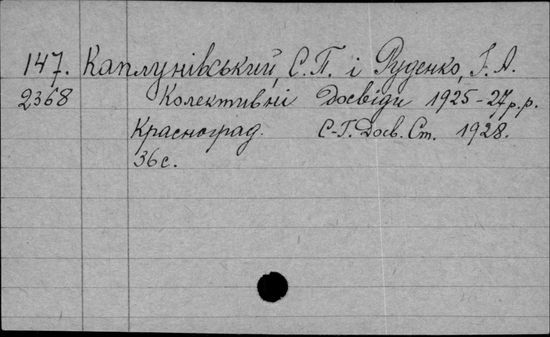 147. Каплунівський, С.П. і Руденко, І. А.
2368 Колективні Досвіди 1925-27 р.р.
Красноград. С-Г. Досв. Ст. 1928.
36 с.